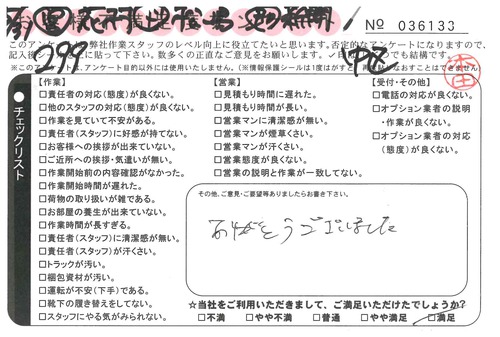 お客様不満足度投函用紙
No 036133
このアンケートは弊社作業スタッフのレベル向上に役立てたいと思います。否定的なアンケートになりますので、
記入後シールに貼って下さい。数多くの正直なご意見をお願いします。
299
【作業】
□責任者の対応(態度)が良くない。
□他のスタッフの対応(態度)が良くない。
□作業を見ていて不安がある。
□責任者(スタッフ)に好感が持てない。
□お客様への挨拶が出来ていない。
□ご近所への挨拶・気遣いが無い。
□作業開始前の内容確認がなかった。
□作業開始時間が遅れた。
□荷物の取り扱いが雑である。
□お部屋の養生が出来ていない。
□作業時間が長すぎる。
□責任者(スタッフ)に清潔感が無い。
□責任者(スタッフ)が汗くさい。
□トラックが汚い。
□梱包資材が汚い。
□運転が不安(下手)である。
□靴下の履き替えをしてない。
□スタッフにやる気がみられない。
【営業】
□見積もり時間に遅れた。
□見積もり時間が長い。
□営業マンに清潔感が無い。
□営業マンが煙草くさい。
□営業マンが汗くさい。
□営業の態度が良くない。
□営業の説明と作業が一致してない。
【受付・その他】
□電話の対応が良くない。
□オプション業者の説明
・作業が良くない。
□オプション業者の対応
(態度)が良くない。
チェックリスト
その他、ご意見・ご要望等ありましたらお書き下さい。
ありがとうございました
☆当社をご利用いただきまして、ご満足いただけたでしょうか?
□不満 □やや不満 □普通 □やや満足 □満足